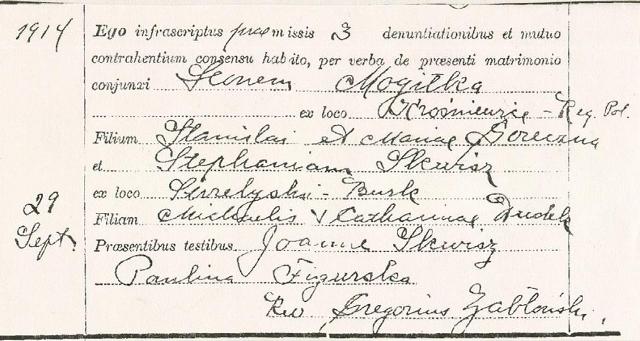 1914
Ego infrascriptus præmissis 3 denuntiationibus et mutuo
contrahentium consensu habito, per verba de præsenti matrimonio
conjunxi Leonem Mogiłka
ex loco Krośniewice - Reg. Pol.
Filium Stanislai et Mariae
et Stephaniam Skwisz
ex loco - Busk
29 Sept. Filiam Michaelis & Catharinae Dudek
Præsentibus testibus Joanne Skwisz
Paulina Figurska
Rev Gregorius Zabłoński.